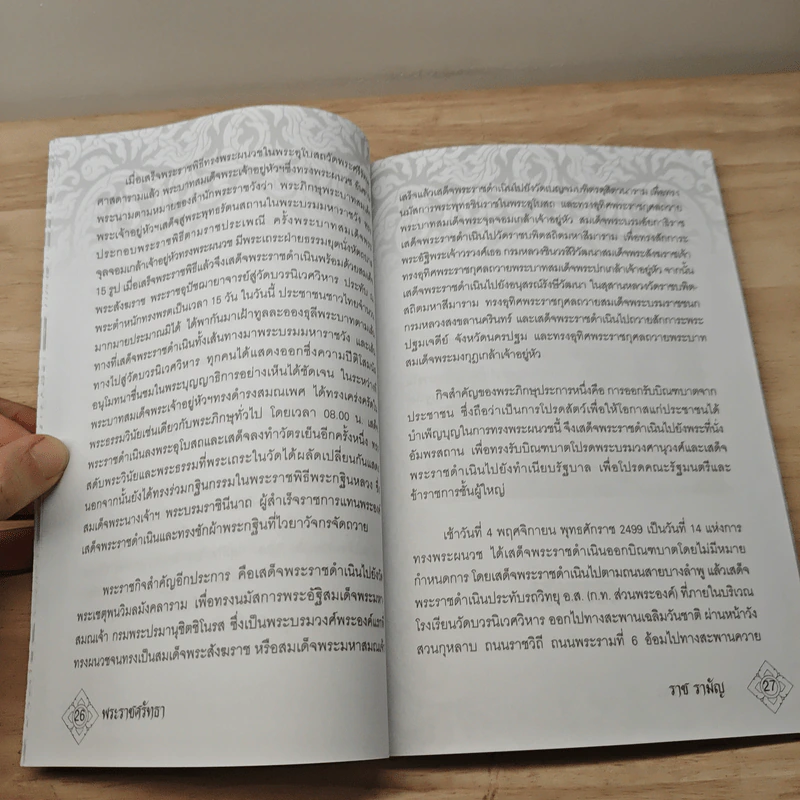 เมื่อเสร็จพระราชพิธีทรงพระผนวชในพระอุโบสถวัดพระศรี
ศาสดารามแล้ว พระบาทสมเด็จพระเจ้าอยู่หัวฯซึ่งทรงพระผนวช
พระนามตามหมายของสำนักพระราชวังว่า พระภิกษุพระบาทสมเด็จ
พระเจ้าอยู่หัวฯเสด็จสู่พระพุทธรัตนสถานในพระบรมมหาราชวัง
ประกอบพระราชพิธีตามราชประเพณี ครั้งพระบาทสมเด็จพระ
จุลจอมเกล้าเจ้าอยู่หัวทรงพระผนวช มีพระเถระฝ่ายธรรมยุตนั่งหัตถบาส
15 รูป เมื่อเสร็จพระราชพิธีแล้วจึงเสด็จพระราชดำเนินพร้อมด้วยสมเด็จ
พระสังฆราช พระราชอุปัชฌายาจารย์สู่วัดบวรนิเวศวิหาร ประทับ
พระตำหนักทรงพรตเป็นเวลา 15 วัน ในวันนี้ ประชาชนชาวไทยจำนวน
มากมายประมาณมิได้ ได้พากันมาเฝ้าทูลละอองธุลีพระบาทตามเส้น
ทางที่เสด็จพระราชดำเนินทั้งเส้นทางมาพระบรมมหาราชวัง และเส้น
ทางไปสู่วัดบวรนิเวศวิหาร ทุกคนได้แสดงออกซึ่งความปีติโสมนัส
อนุโมทนาชื่นชมในพระบุญญาธิการอย่างเห็นได้ชัดเจน ในระหว่างที่
พระบาทสมเด็จพระเจ้าอยู่หัวฯทรงดำรงสมณเพศ ได้ทรงเคร่งครัดใน
พระธรรมวินัยเช่นเดียวกับพระภิกษุทั่วไป โดยเวลา 08.00 น. เสด็จ
พระราชดำเนินลงพระอุโบสถและเสด็จลงทำวัตรเย็นอีกครั้งหนึ่ง
สดับพระวินัยและพระธรรมที่พระเถระในวัดได้ผลัดเปลี่ยนกันแสดง
นอกจากนั้นยังได้ทรงร่วมกฐินกรรมในพระราชพิธีพระกฐินหลวง
สมเด็จพระนางเจ้าฯ พระบรมราชินีนาถ ผู้สำเร็จราชการแทนพระองค์
เสด็จพระราชดำเนินและทรงชักผ้าพระกฐินที่ไวยาวัจกรจัดถวาย
พระราชกิจสำคัญอีกประการ คือเสด็จพระราชดำเนินไปยังวัด
พระเชตุพนวิมลมังคลาราม เพื่อทรงนมัสการพระอัฐิสมเด็จพระมหา
สมณเจ้า กรมพระปรมานุชิตชิโนรส ซึ่งเป็นพระบรมวงศ์พระองค์แรกที่
ทรงผนวชจนทรงเป็นสมเด็จพระสังฆราช หรือสมเด็จพระมหาสมณเจ้า
26 พระราชศรัทธา
เสร็จแล้วเสด็จพระราชดำเนินไปยังวัดเบญจมบพิตรดุสิตวนาราม เพื่อทรง
นมัสการพระพุทธชินราชในพระอุโบสถ และทรงอุทิศพระราชกุศลถวาย
พระบาทสมเด็จพระจุลจอมเกล้าเจ้าอยู่หัว สมเด็จพระบรมอัยกาธิราช
เสด็จพระราชดำเนินไปวัดราชบพิตสถิตมหาสีมาราม เพื่อทรงสักการะ
พระอัฐิพระเจ้าวรวงศ์เธอ กรมหลวงชินวรสิริวัฒนาสมเด็จพระสังฆราชเจ้า
ทรงอุทิศพระราชกุศลถวายพระบาทสมเด็จพระปกเกล้าเจ้าอยู่หัว จากนั้น
เสด็จพระราชดำเนินไปยังอนุสรณ์รังษีวัฒนา ในสุสานหลวงวัดราชบพิต-
สถิตมหาสีมาราม ทรงอุทิศพระราชกุศลถวายสมเด็จพระบรมราชชนก
กรมหลวงสงขลานครินทร์ และเสด็จพระราชดำเนินไปถวายสักการะพระ
ปฐมเจดีย์ จังหวัดนครปฐม และทรงอุทิศพระราชกุศลถวายพระบาท
สมเด็จพระมงกุฎเกล้าเจ้าอยู่หัว
กิจสำคัญของพระภิกษุประการหนึ่งคือ การออกรับบิณฑบาตจาก
ประชาชน ซึ่งถือว่าเป็นการโปรดสัตว์เพื่อให้โอกาสแก่ประชาชนได้
บำเพ็ญบุญในการทรงพระผนวชนี้ จึงเสด็จพระราชดำเนินไปยังพระที่นั่ง
อัมพรสถาน เพื่อทรงรับบิณฑบาตโปรดพระบรมวงศานุวงศ์และเสด็จ
พระราชดำเนินไปยังทำเนียบรัฐบาล เพื่อโปรดคณะรัฐมนตรีและ
ข้าราชการชั้นผู้ใหญ่
เช้าวันที่ 4 พฤศจิกายน พุทธศักราช 2499 เป็นวันที่ 14 แห่งการ
ทรงพระผนวช ได้เสด็จพระราชดำเนินออกบิณฑบาตโดยไม่มีหมาย
กำหนดการ โดยเสด็จพระราชดำเนินไปตามถนนสายบางลำพู แล้วเสด็จ
พระราชดำเนินประทับรถวิทยุ อ.ส. (ก.ท. ส่วนพระองค์) ที่ภายในบริเวณ
โรงเรียนวัดบวรนิเวศวิหาร ออกไปทางสะพานเฉลิมวันชาติ ผ่านหน้าวัง
สวนกุหลาบ ถนนราชวิถี ถนนพระรามที่ 6 อ้อมไปทางสะพานควาย
ราช รามัญ 27